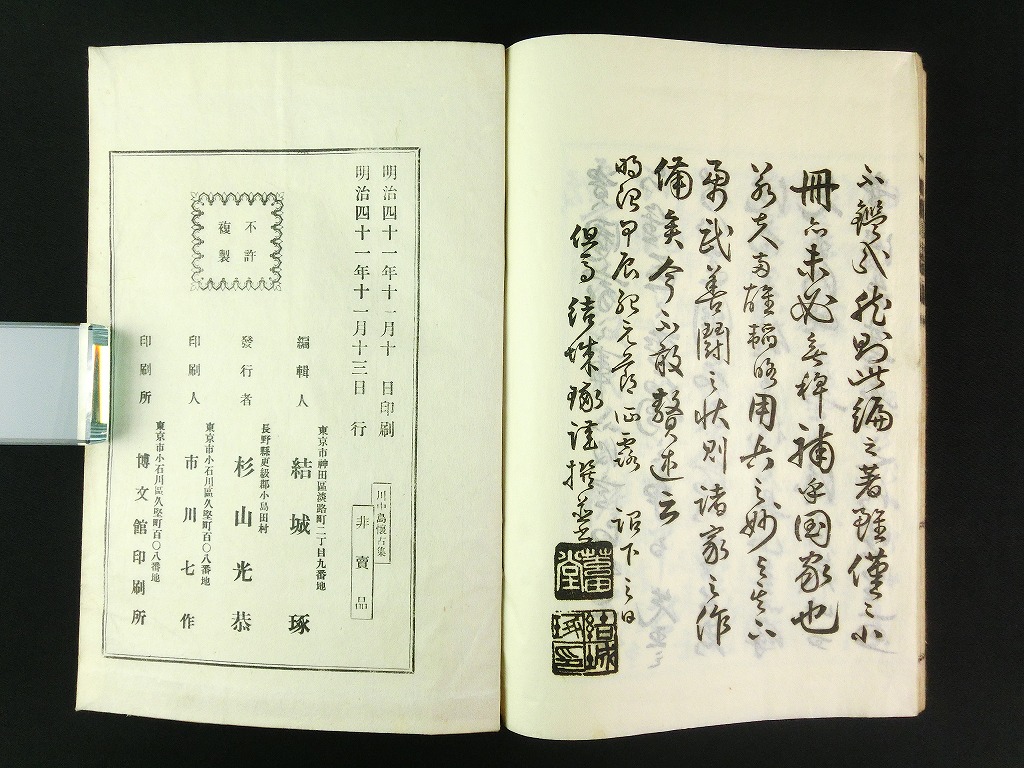 不鑑哉然則此編之著雖僅々小
冊亦未必無裨補乎国家也
若夫両雄韜略用兵之妙
勇武善闘之状則諸家之作
備矣今不敢贅述云
甲辰紀元節征露 詔下之日
但馬 結城琢謹撰并書
結城
明治四十一年十一月十 日印刷
明治四十一年十一月十三日 行
不許
複製
川中島懐古集
非賣品
編輯人 東京市神田區淡路町二丁目九番地 結城琢
發行者 長野縣更級郡小島田村 杉山光恭
印刷人 東京市小石川區久堅町百〇八番地 市川七作
印刷所 東京市小石川區久堅町百〇八番地 博文館印刷所